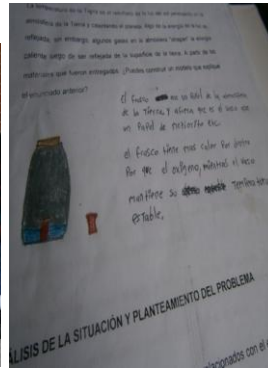 La temperatura de la Tierra es el resultado de la luz del sol penetrando en la
atmósfera de la Tierra y calentando el planeta. Algo de la energía térmica es
reflejada, sin embargo, algunos gases en la atmósfera "atrapan" la energía
calorífica luego de ser reflejada de la superficie de la tierra. A partir de los
materiales que fueron entregados. ¿Puedes construir un modelo que explique
el enunciado anterior?
el frasco no es igual de la
de la Tierra y afuera que es el vaso con
un Papel de
el frasco tiene mas calor Por dentro
Por que el oxígeno, mientras el vaso
mantiene su Temperatura
esTable.
ÁLISIS DE LA SITUACIÓN Y PLANTEAMIENTO DEL PROBLEMA
relacionados con el